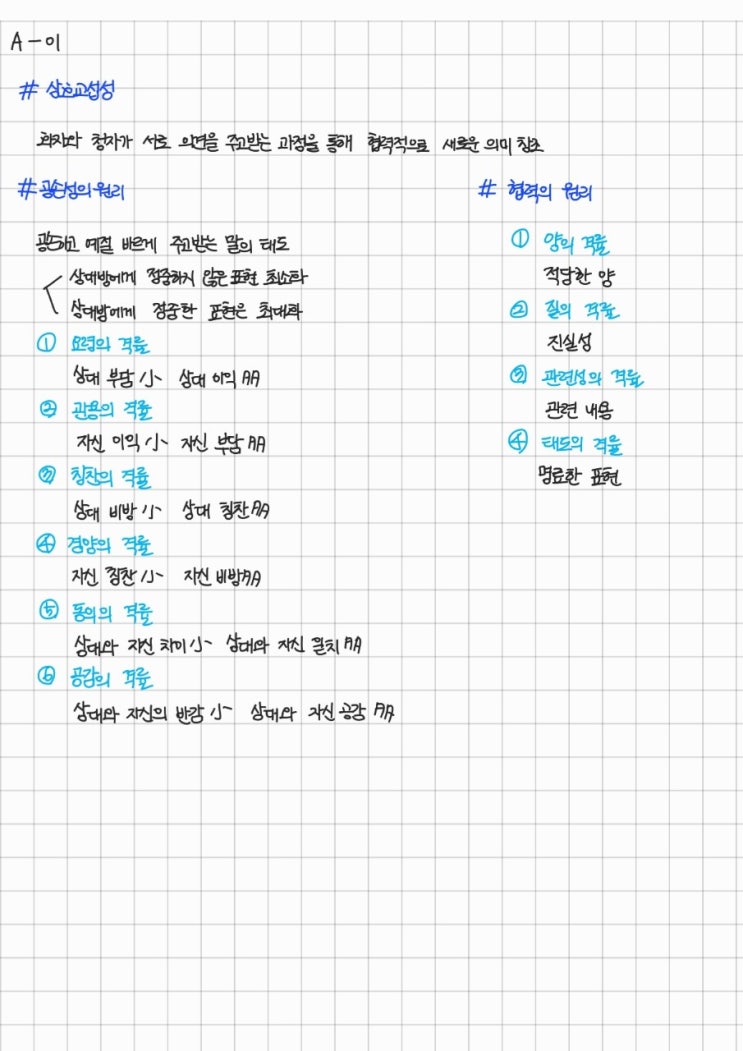 A-01
# 상호교섭성
화자와 청자가 서로 의견을 주고받는 과정을 통해 협력적으로 새로운 의미 창조
# 공손성의 원리
공손하고 예절 바르게 주고받는 말의 태도
상대방에게 정중하지 않은 표현 최소화
상대방에게 정중한 표현은 최대화
① 요령의 격률
상대 부담 小 상대 이익 많
② 관용의 격률
자신 이익 小 자신 부담
③ 칭찬의 격률
상대 비방 小 상대 칭찬
④ 겸양의 격률
자신 칭찬 小 자신 비방
⑤ 동의의 격률
상대와 자신 차이 小 상대와 자신 일치
⑥ 공감의 격률
상대와 자신의 반감 小 상대와 자신 공감
# 협력의 원리
① 양의 격률
적당한 양
② 질의 격률
진실성
③ 관련성의 격률
관련 내용
④ 태도의 격률
명료한 표현